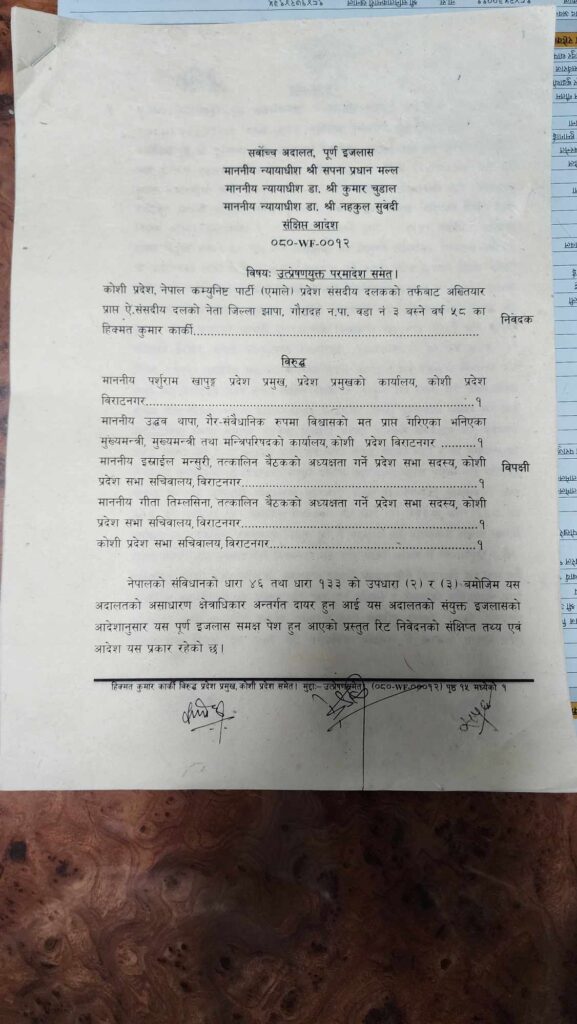 सर्वोच्च अदालत, पूर्ण इजलास
माननीय न्यायाधीश श्री सपना प्रधान मल्ल
माननीय न्यायाधीश डा. श्री कुमार चुडाल
माननीय न्यायाधीश डा. श्री नहकुल सुवेदी
संक्षिप्त आदेश
०८०-WF-००१२
विषयः उत्प्रेषणयुक्त परमादेश समेत।
कोशी प्रदेश, नेपाल कम्युनिष्ट पार्टी (एमाले) प्रदेश संसदीय दलकको तर्फबाट अख्तियार
प्राप्त ऐ.संसदीय दलको नेता जिल्ला झापा, गौरादह न.पा. वडा नं ३ बस्ने वर्ष ५८ का
हिक्मत कुमार कार्की.......................................................................... निवेदक
विरुद्ध
माननीय पर्शुराम खापुङ्ग प्रदेश प्रमुख, प्रदेश प्रमुखको कार्यालय, कोशी प्रदेश
विराटनगर.......................................................................................१
माननीय उद्धव थापा, गैर-संवैधानिक रुपमा विश्वासको मत प्राप्त गरिएका भनिएका
मुख्यमन्त्री, मुख्यमन्त्री तथा मन्त्रिपरिषदको कार्यालय,कोशी प्रदेश विराटनगर ..........१
माननीय इस्राईल मन्सुरी, तत्कालिन बैठकको अध्यक्षता गर्ने प्रदेश सभा सदस्य, कोशी विपक्षी
प्रदेश सभा सचिवालय, विराटनगर............................................................१
माननीय गीता तिम्लसिना, तत्कालिन बैठकको अध्यक्षता गर्ने प्रदेश सभा सदस्य, कोशी
प्रदेश सभा सचिवालय, विराटनगर............................................................१
कोशी प्रदेश सभा सचिवालय,विराटनगर......................................................१
नेपालको संविधानको धारा ४६ तथा धारा १३३ को उपधारा (२) र (३) बमोजिम यस
अदालतको असाधारण क्षेत्राधिकार अन्तर्गत दायर हुन आई यस अदालतको संयुक्त इजलासको
आदेशानुसार यस पूर्ण इजलास समक्ष पेश हुन आएको प्रस्तुत रिट निवेदनको संक्षिप्त तथ्य एवं
आदेश यस प्रकार रहेको छ।
हिक्मत कुमार कार्की विरुद्ध प्रदेश प्रमुख,कोशी प्रदेश समेत। मुद्दाः- उत्प्रेषणसमेत, (०८०-WF-००१२) पृष्ठ १५ मध्येको १